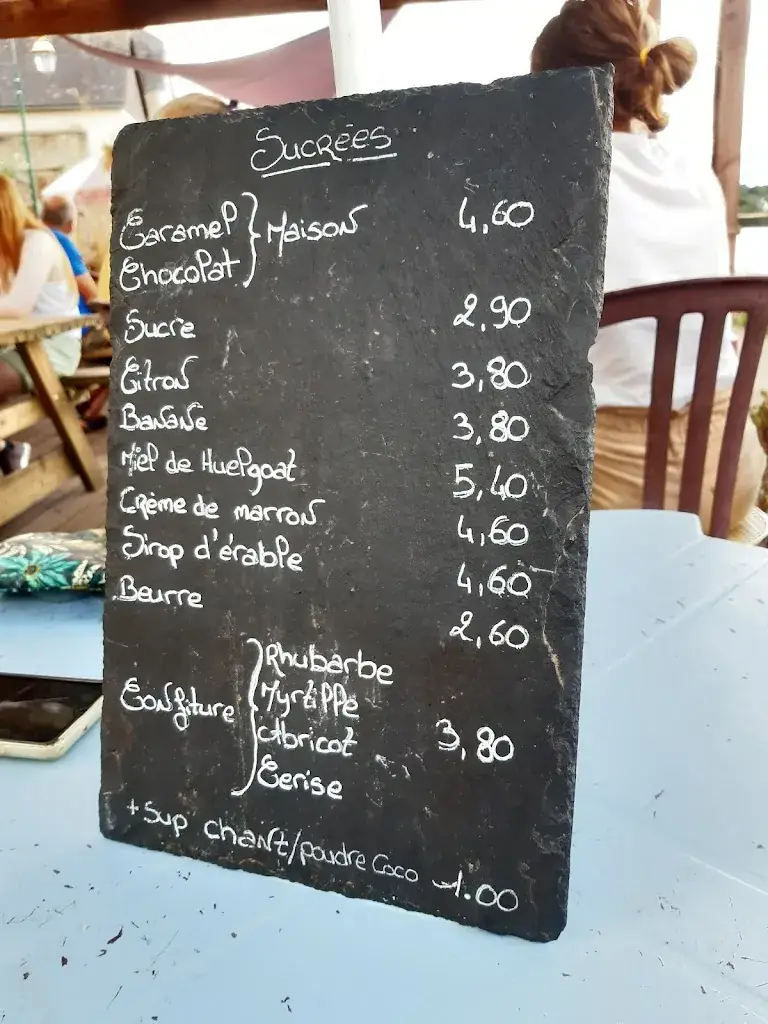 Sucrées
Caramel } Maison 4,60
Chocolat
Sucre 2,90
Citron 3,80
Banane 3,80
Miel de Huelgoat 5,40
Crème de marron 4,60
Sirop d'érable 4,60
Beurre 2,60
Rhubarbe
Myrtille
Confiture { Abricot 3,80
Cerise
+ Sup chant/poudre Coco 1.00